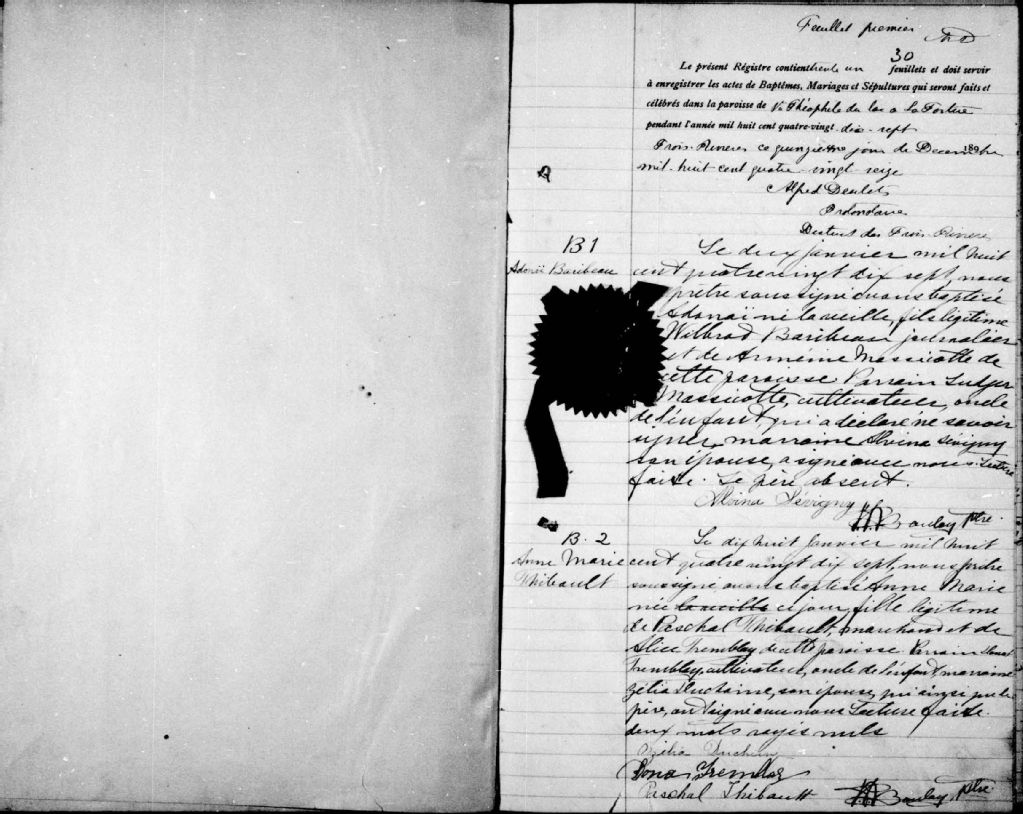 Feuillet premier
30
Le présent Régistre contient trente un feuillets et doit servir
à enregistrer les actes de Baptêmes, Mariages et Sépultures qui seront faits et
célébrés dans la paroisse de St Théophile du lac a la Tortue
pendant l'année mil huit cent quatre-vingt dix-sept
Trois-Rivieres ce quinzieme jour de Decembre 189
mil-huit cent quatre-vingt-seize
Alfred Desilets
Protonotaire
District des Trois-Rivieres
B 1
Adonaï Baribeau
Le deux janvier mil huit
cent quatre vingt dix sept, nous
prêtre soussigné avons baptisé
Adonaï né la veille, fils légitime
Wilbrod Baribeau journalier
et de Arméline Massicotte de
cette paroisse Parrain Ludger
Massicotte, cultivateur, oncle
de l'enfant, qui a déclaré ne savoir
signer, marraine Alvina Sévigny
son épouse, a signé avec nous. Lecture
faite. Le père absent.
Alvina Sévigny
Boulay Ptre.
B. 2
Anne Marie
Thibault
Le dix huit Janvier mil huit
cent quatre vingt dix sept, nous prêtre
soussigné avons baptisé Anne Marie
née la veille ce jour, fille légitime
de Paschal Thibault, marchand et de
Alice Tremblay de cette paroisse. Parrain Dona
Tremblay, cultivateur, oncle de l'enfant, marraine
Zélia Duchaine, son épouse, qui ainsi que le
père, ont signé avec nous Lecture faite.
deux mots rayés nuls
Zélia Duchaine
Dona Tremblay
Paschal Thibault
Boulay, Ptre.